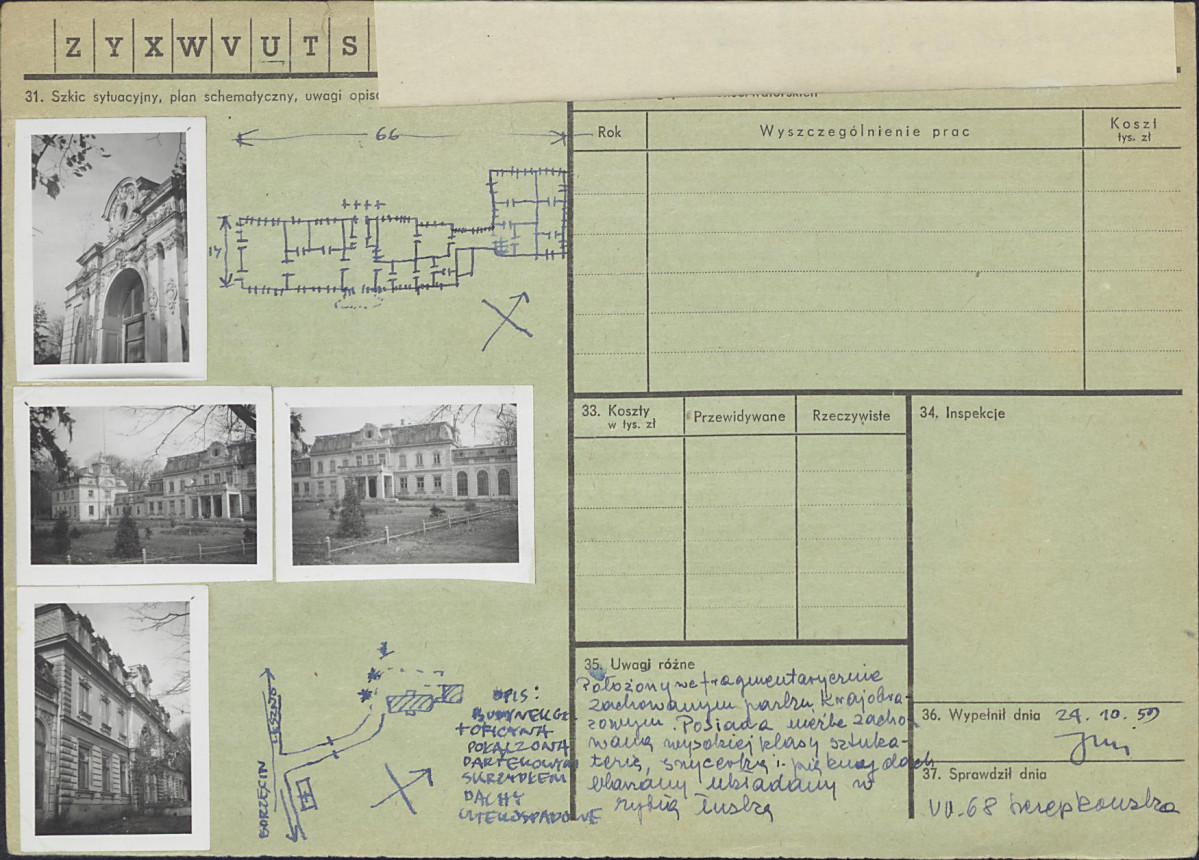 Z Y X W V U T S
31. Szkic sytuacyjny, plan schematyczny, uwagi opis
66
14
Rok
Wyszczególnienie prac
Koszt
tys. zł
33. Koszty
w tys. zł
Przewidywane
Rzeczywiste
34. Inspekcje
BORZĘCIN
LESZNO
OPIS:
BUDYNEK GŁ.
+ OFICYNA
POŁĄCZONA
PARTEROWYM
SKRZYDŁEM
DACHY
CZTEROSPADOWE
35. Uwagi różne
Położony we fragmentarycznie
zachowanym parku krajobra-
zowym. Posiada nieźle zacho-
waną wysokiej klasy sztuka-
terię, snycerkę i piękny dach
blaszany układany w
rybią łuskę
36. Wypełnił dnia 24.10.59
37. Sprawdził dnia
VII.68